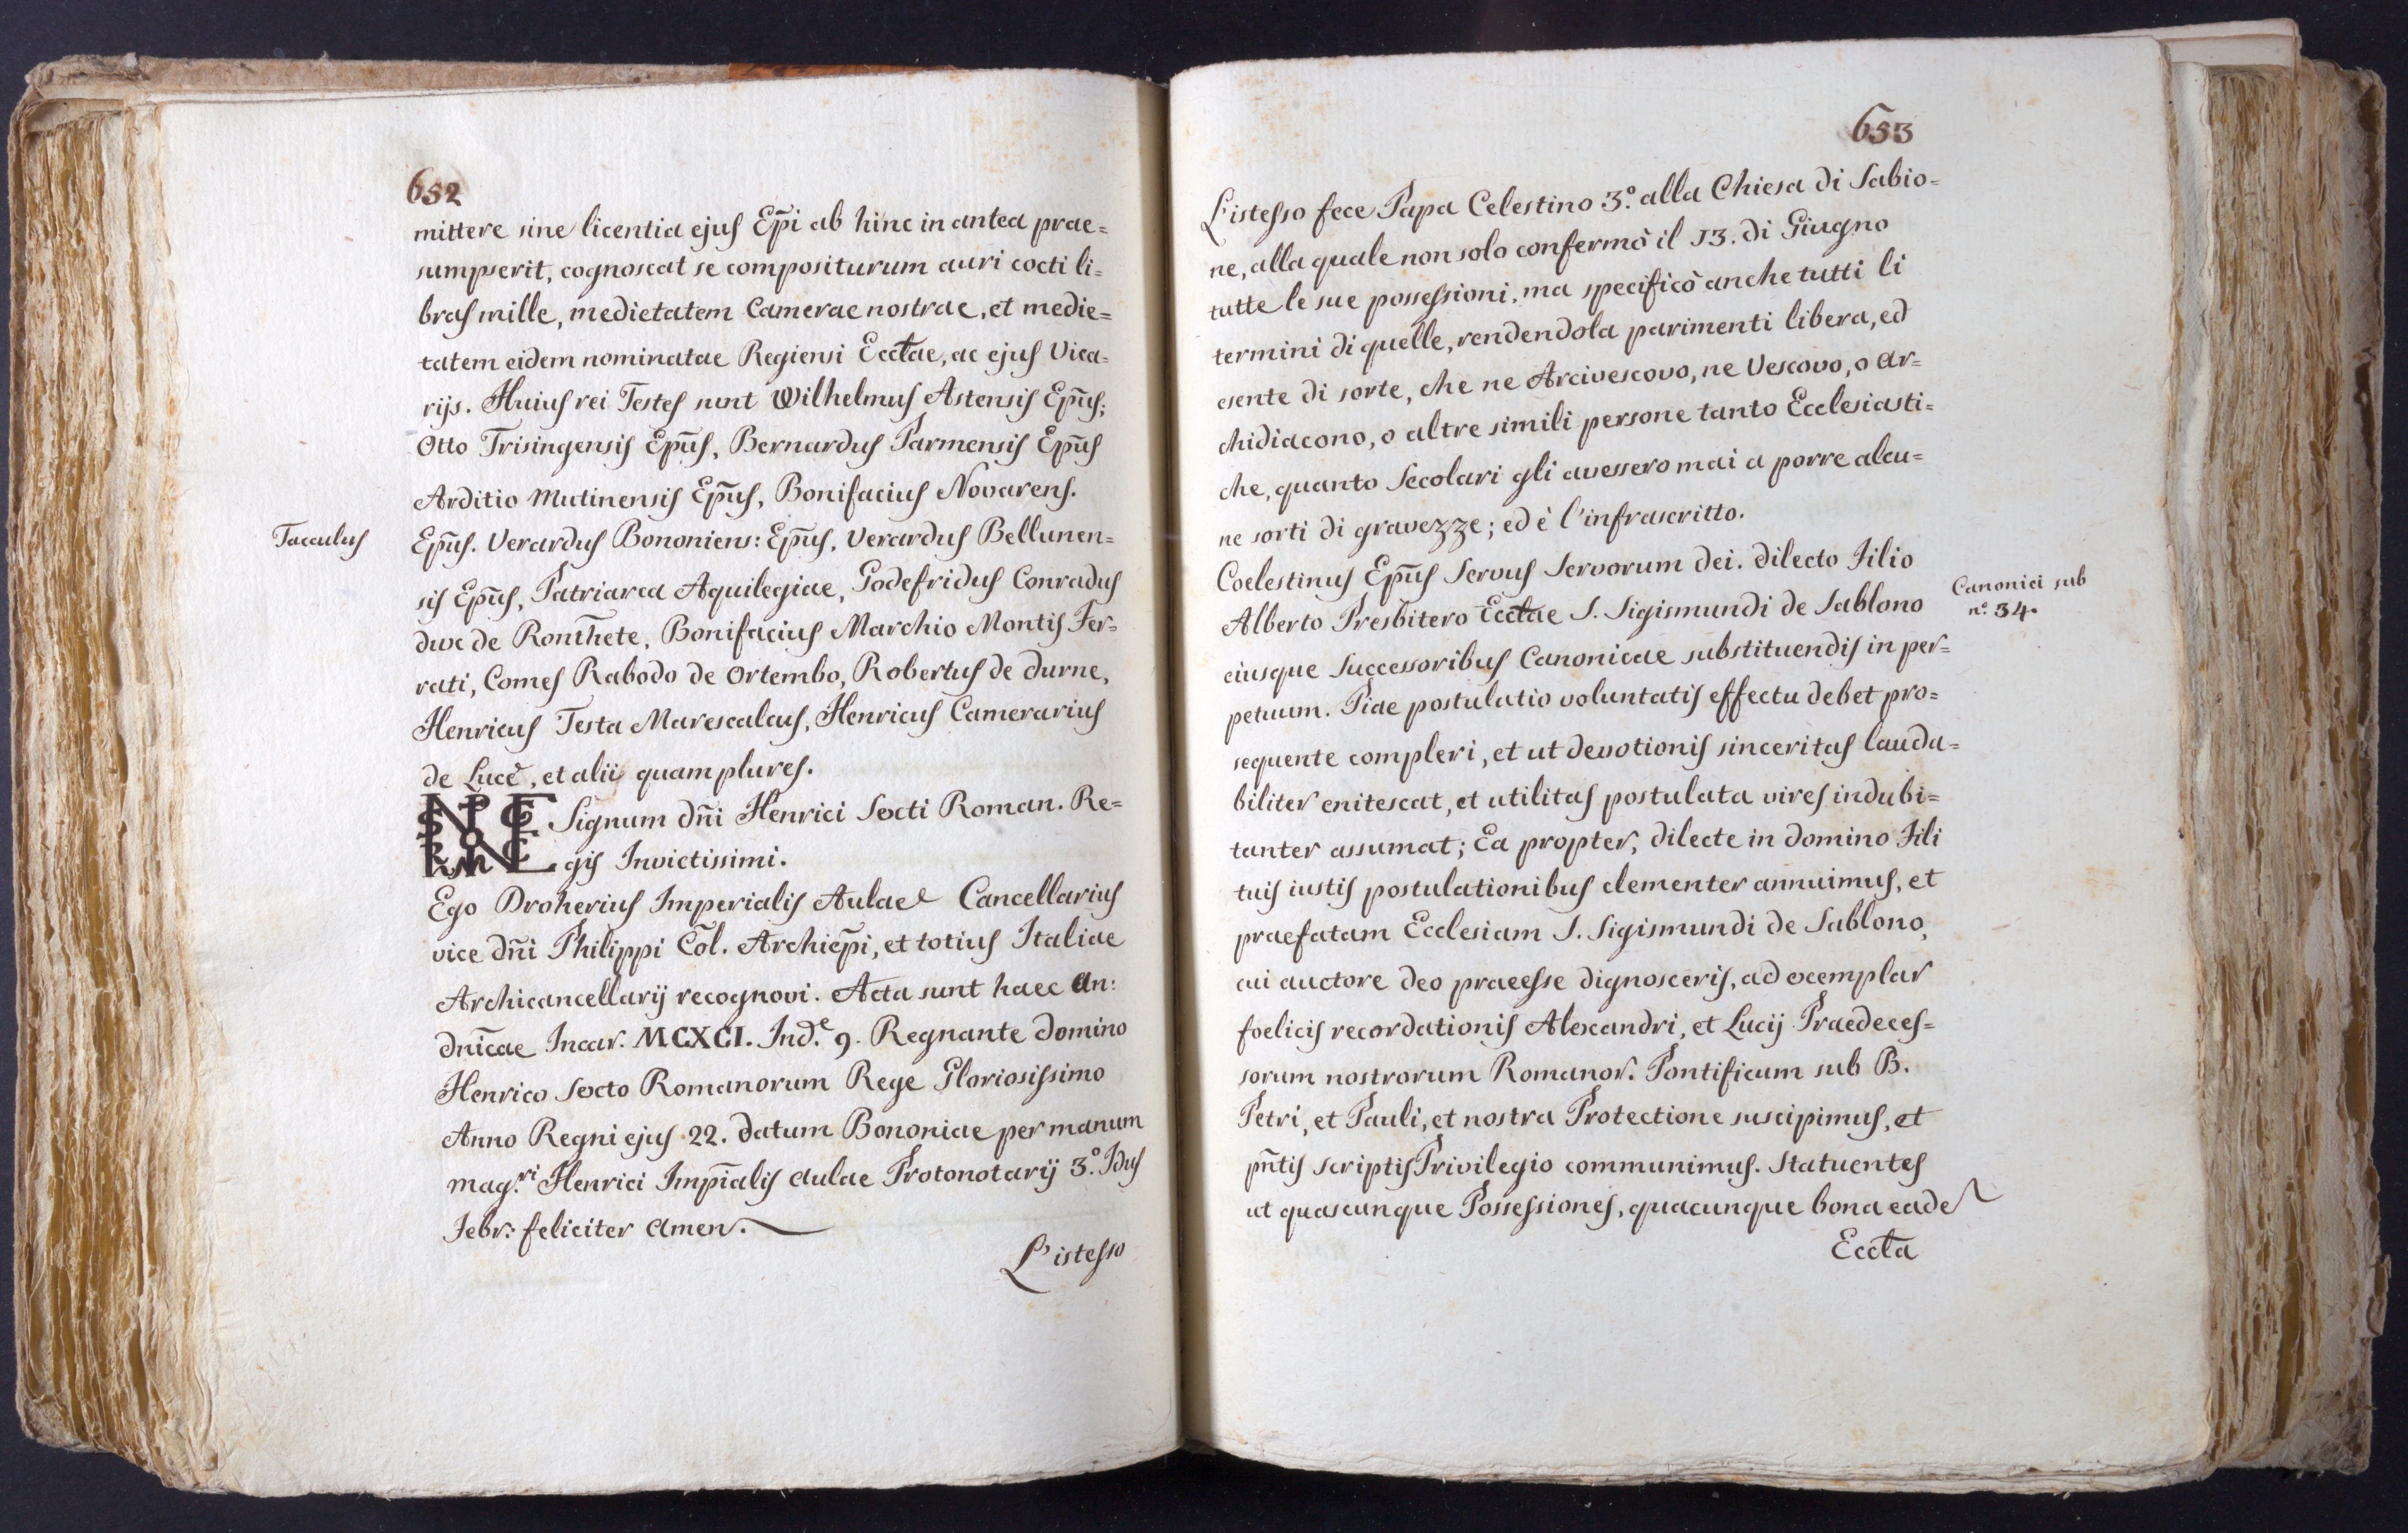 652
mittere sine licentia ejus Ep̃i ab hinc in antea prae=
sumpserit, cognoscat se compositurum auri cocti li=
bras mille, medietatem Camerae nostrae, et medie=
tatem eidem nominatae Regiensi Ecctae, ac ejus Vica=
rijs. Huius rei Testes sunt Wilhelmus Astensis Ep̃us;
Otto Frisingensis Ep̃us, Bernardus Parmensis Ep̃us
Arditio Mutinensis Ep̃us, Bonifacius Novarens.
Tacculus
Ep̃us. Verardus Bononiens: Ep̃us, Verardus Bellunen=
sis Ep̃us, Patriarca Aquilegiae, Godefridus Conradus
dux de Ronth̃ete, Bonifacius Marchio Montis Fer=
rati, Comes Rabodo de Ortembo, Robertus de durne,
Henricus Testa Marescalcus, Henricus Camerarius
de Luce, et alii quam plures.
Signum dñi Henrici Sexti Roman. Re=
gis Invictissimi.
Ego Droherius Imperialis Aulae Cancellarius
vice dñi Philippi Cõl. Archiep̃i, et totius Italiae
Archicancellarij recognovi. Acta sunt haec an:
dnĩcae Incar. MCXCI. Ind.e 9. Regnante domino
Henrico Sexto Romanorum Rege Gloriosissimo
Anno Regni ejus 22. datum Bononiae per manum
mag.ri Henrici Imp̃ialis aulae Protonotarij 3.º Idus
Febr: feliciter amen.
L'istesso
653
L'istesso fece Papa Celestino 3.º alla Chiesa di Sabio=
ne, alla quale non solo confermò il 13. di Giugno
tutte le sue possessioni, ma specificò anche tutti li
termini di quelle, rendendola parimenti libera, ed
esente di sorte, che ne Arcivescovo, ne Vescovo, o ar=
chidiacono, o altre simili persone tanto Ecclesiasti=
che, quanto Secolari gli avessero mai a porre alcu=
ne sorti di gravezze; ed è l'infrascritto.
Coelestinus Ep̃us Servus Servorum dei. dilecto Filio
Alberto Presbitero Ecctae S. Sigismundi de Sablono
Canonici sub
nº. 34.
eiusque Successoribus Canonicae substituendis in per=
petuum. Piae postulatio voluntatis effectu debet pro=
sequente compleri, et ut devotionis sinceritas lauda=
biliter enitescat, et utilitas postulata vires indubi=
tanter assumat; Ea propter, dilecte in domino Fili
tuis iustis postulationibus clementer annuimus, et
praefatam Ecclesiam S. Sigismundi de Sablono,
cui auctore deo praeesse dignosceris, ad exemplar
foelicis recordationis Alexandri, et Lucij Praedeces=
sorum nostrorum Romanor. Pontificum sub B.
Petri, et Pauli, et nostra Protectione suscipimus, et
pñtis scriptis Privilegio communimus. Statuentes
ut quascunque Possessiones, quacunque bona eade
Eccta